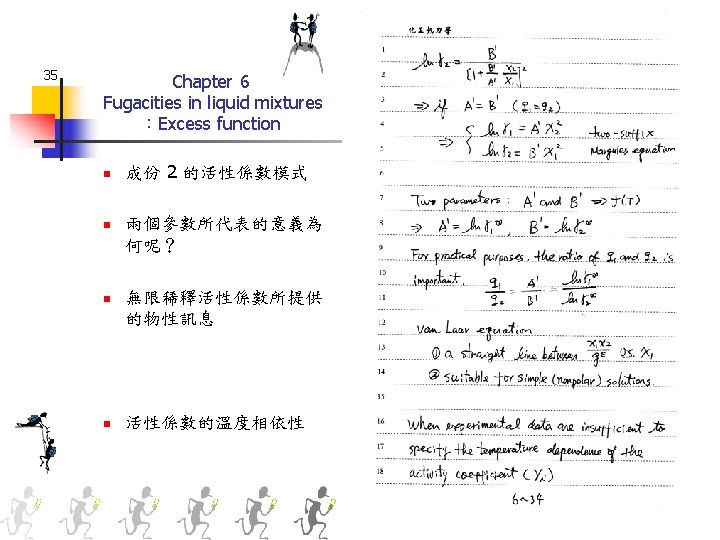 35
Chapter 6
Fugacities in liquid mixtures
：Excess function
成份 2 的活性係數模式
兩個參數所代表的意義為
何呢？
無限稀釋活性係數所提供
的物性訊息
活性係數的溫度相依性
化工熱力學
1
ln γ₂ = B' / [1 + (B'/A')(x₂/x₁)]²
2
3
⇒ if A' = B' (q₁ = q₂)
4
⇒ { ln γ₁ = A' x₂² two-suffix
5
ln γ₂ = B' x₁² Margules equation
6
7
Two parameters: A' and B' ⇒ f(T)
8
⇒ A' = ln γ₁^∞, B' = ln γ₂^∞
9
For practical purposes, the ratio of q₁ and q₂ is
10
important.
11
q₁/q₂ = A'/B' = ln γ₁^∞ / ln γ₂^∞
12
van Laar equation
13
① a straight line between x₁x₂/g^E vs. x₁
14
② suitable for simple (nonpolar) solutions
15
16
When experimental data are insufficient to
17
specify the temperature dependence of the
18
activity coefficient (γᵢ)
6~34